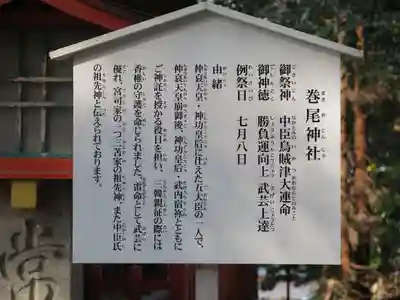 巻尾神社
御祭神　中臣烏賊津大連命
御神徳　勝負運向上　武芸上達
例祭日　七月八日
由緒
仲哀天皇・神功皇后に仕えた五大臣の一人で、
仲哀天皇崩御後、神功皇后・武内宿祢とともに
ご神託を授かる役目を担い、三韓親征の際には
香椎の守護を命じられました。雷命として武芸に
優れ、宮司家の一つ三苫家の祖先神、また中臣氏
の祖先神と伝えられております。
常